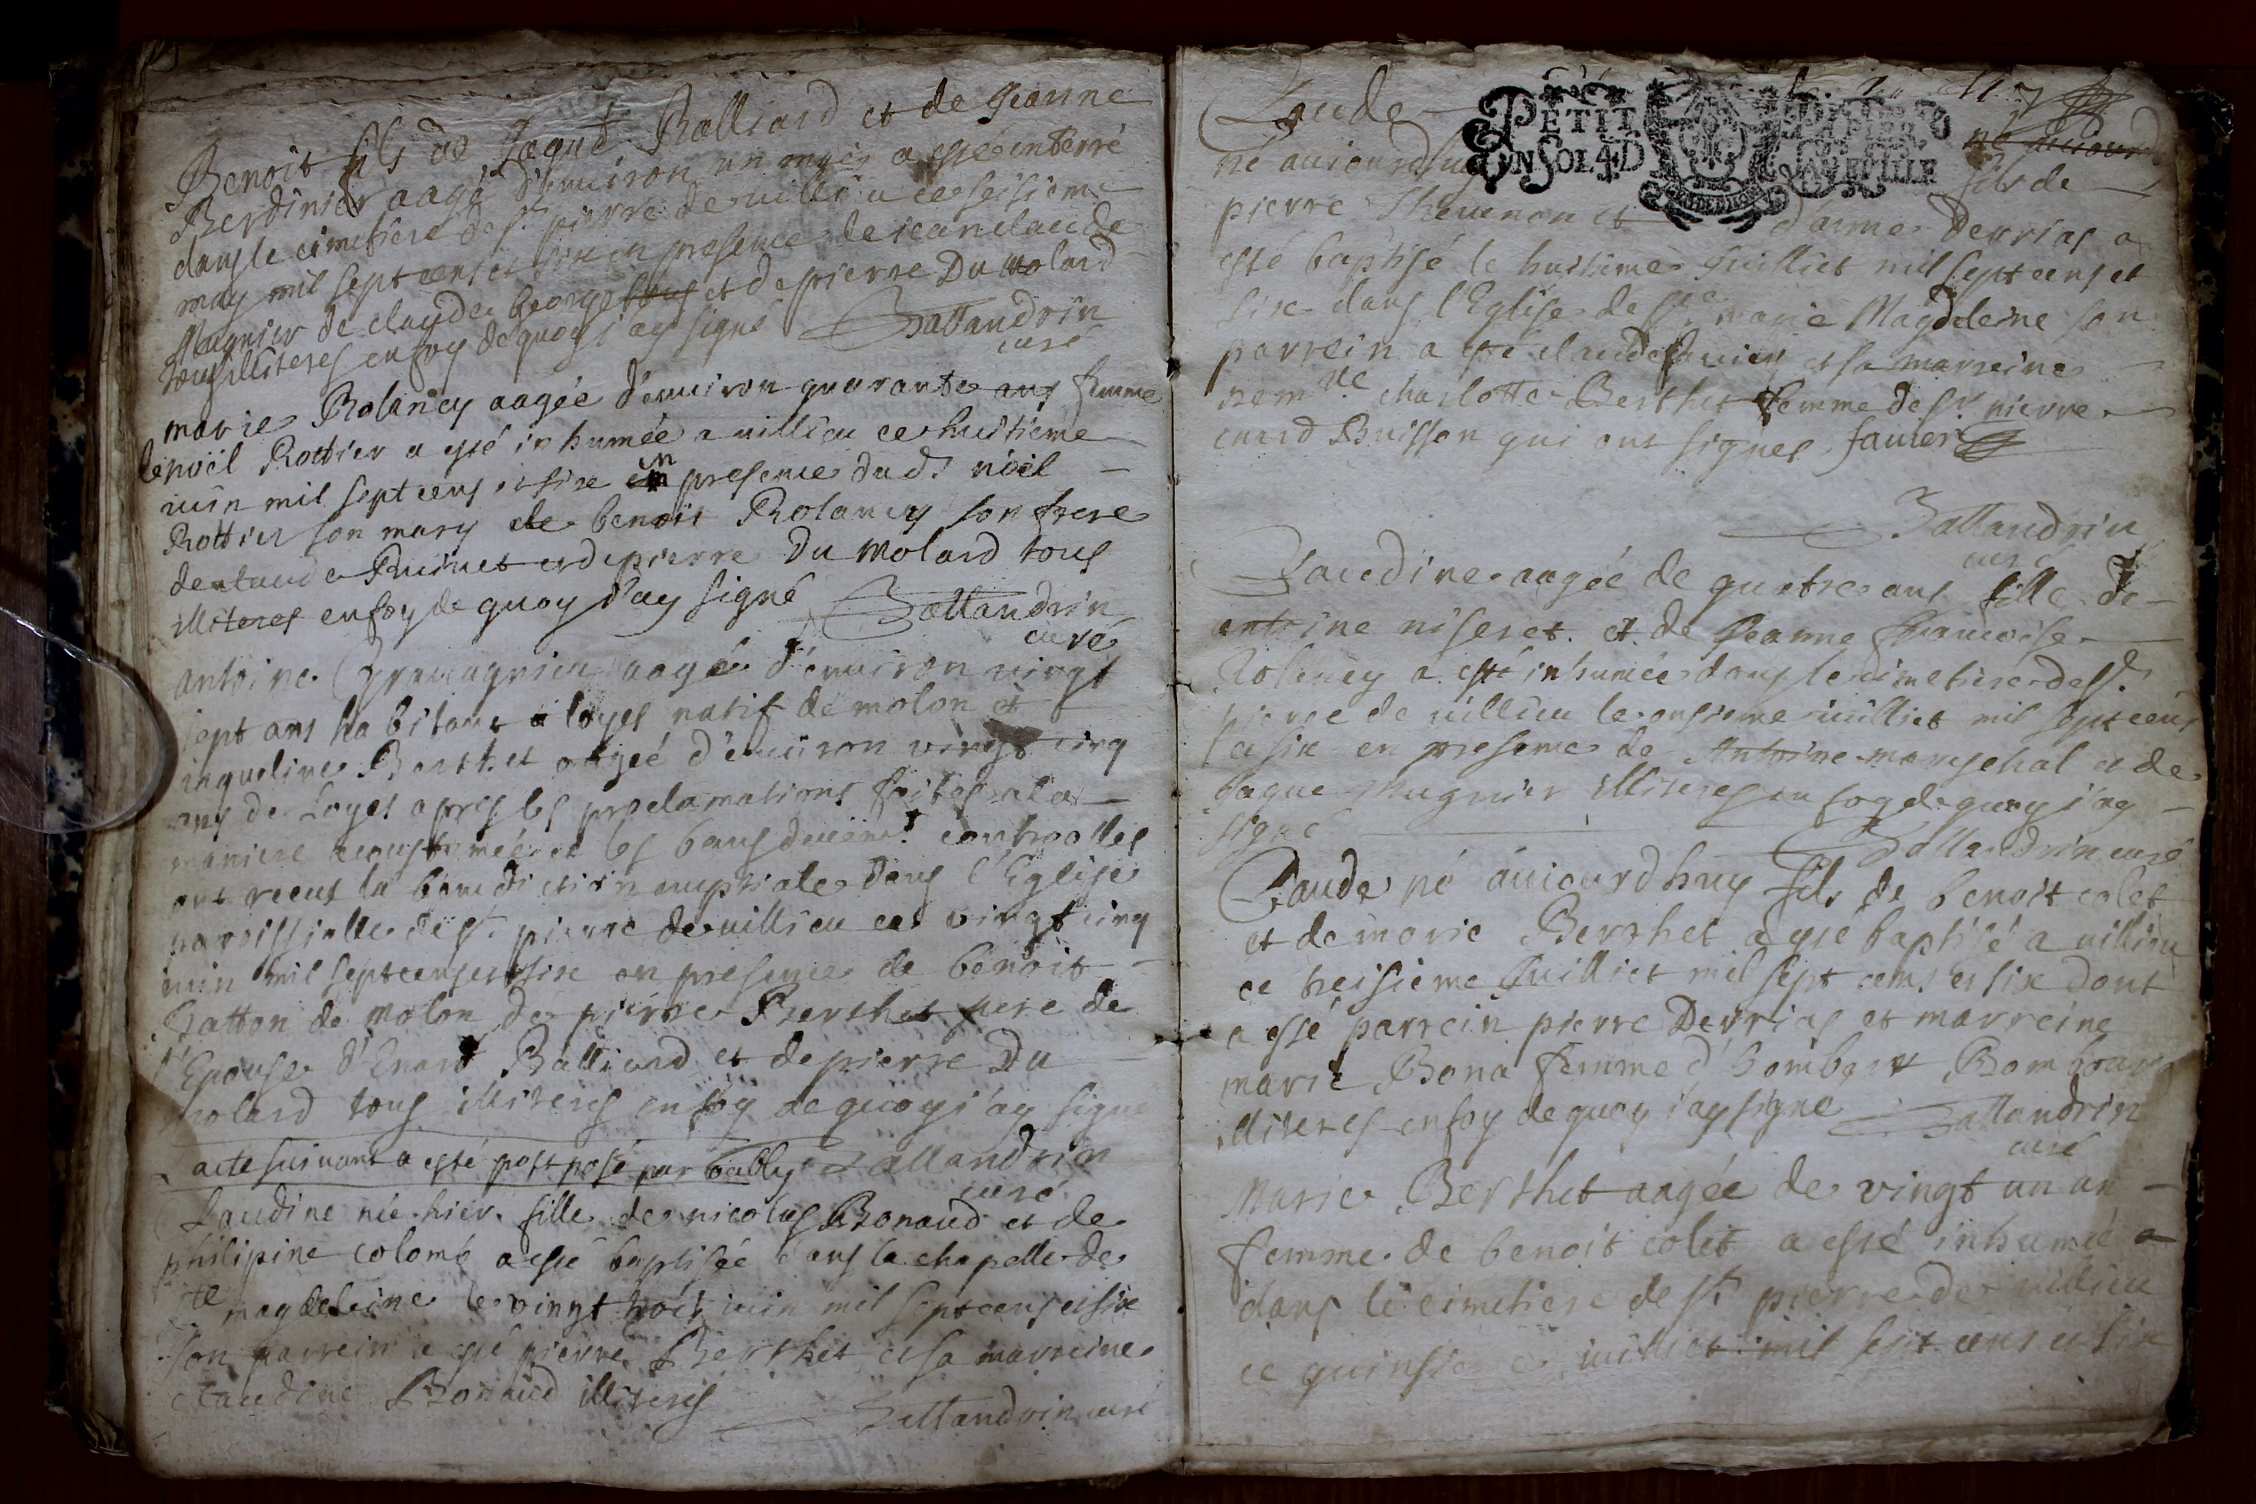 Benoit fils de Jaque Balliard et de Jeanne
Berdinier aagé d'environ un moys a esté enterré
dans le cimetiere de st. pierre de villieu ce seisieme
may mil sept cens et sixe en presence de jean claude
Mugnier de claude George et de pierre Du Molard
tous illiteres en foy de quoy j'ay signé Ballandrin
curé
marie Rolancy aagée d'environ quarante ans femme
de noël Rottier a esté inhumée a villieu ce huitieme
iuin mil sept cens et sixe en presence dud. nöel
Rottier son mary de benoit Rolancy son frere
de claude et de pierre Du Molard tous
illiteres en foy de quoy j'ay signé Ballandrin
curé
antoine aagé d'environ vingt
sept ans habitant a loyes natif de molon et
iaqueline Berthet aagée d'environ vingt cinq
ans de Loyes apres les proclamations faites a la
maniere acoustumée et les bans controolles
ont receus la benediction nuptiale dans l'Eglise
paroissialle de st. pierre de villieu ce vingt cinq
iuin mil sept cens et sixe en presence de benoit
de molon de pierre Berthet pere de
l'Epouse d'Enard Balliard et de pierre Du
Molard tous illiteres en foy de quoy j'ay signé
acte suivant a esté postposé par oubly Ballandrin
curé
Claudine née hier fille de nicolas Bonaud et de
philipine colomb a esté baptisée dans la chapelle de
ste magdeleine le vingt trois iuin mil sept cens et sixe
son parrein a esté pierre Berthet et sa marreine
claudine Bonaud illiteres
Ballandrin curé
Claude né aujourd
PETIT PAPIER
UN SOL 4 D LA FEUILLE
né aujourdhuy fils de
pierre Thevenon et d'anne Derrias a
esté baptisé le huitieme Juilliet mil sept cens et
sixe dans l'Eglise de ste marie Magdeleine son
parrein a esté claude et sa marreine
charlotte Berthet femme de sr. pierre
Buisson qui ont signes
Ballandrin
curé
Claudine aagée de quatre ans fille de
antoine niseret et de Jeanne francoise
Rolancy a esté inhumée dans le cimetiere de st.
pierre de villieu le onsieme iuilliet mil sept cens
et sixe en presence de Antoine mareschal et de
Jaque Mugnier illiteres en foy de quoy j'ay
signé
Ballandrin curé
Claude né aujourdhuy fils de benoit colet
et de marie Berthet a esté baptisé a villieu
ce treisieme Juilliet mil sept cens et sixe dont
a esté parrein pierre Derrias et marreine
marie Bona femme d'hombert
illiteres en foy de quoy j'ay signé Ballandrin
curé
Marie Berthet aagée de vingt un an
femme de benoit colet a esté inhumé
dans le cimetiere de st. pierre de villieu
ce quinsieme iuilliet mil sept cens et sixe